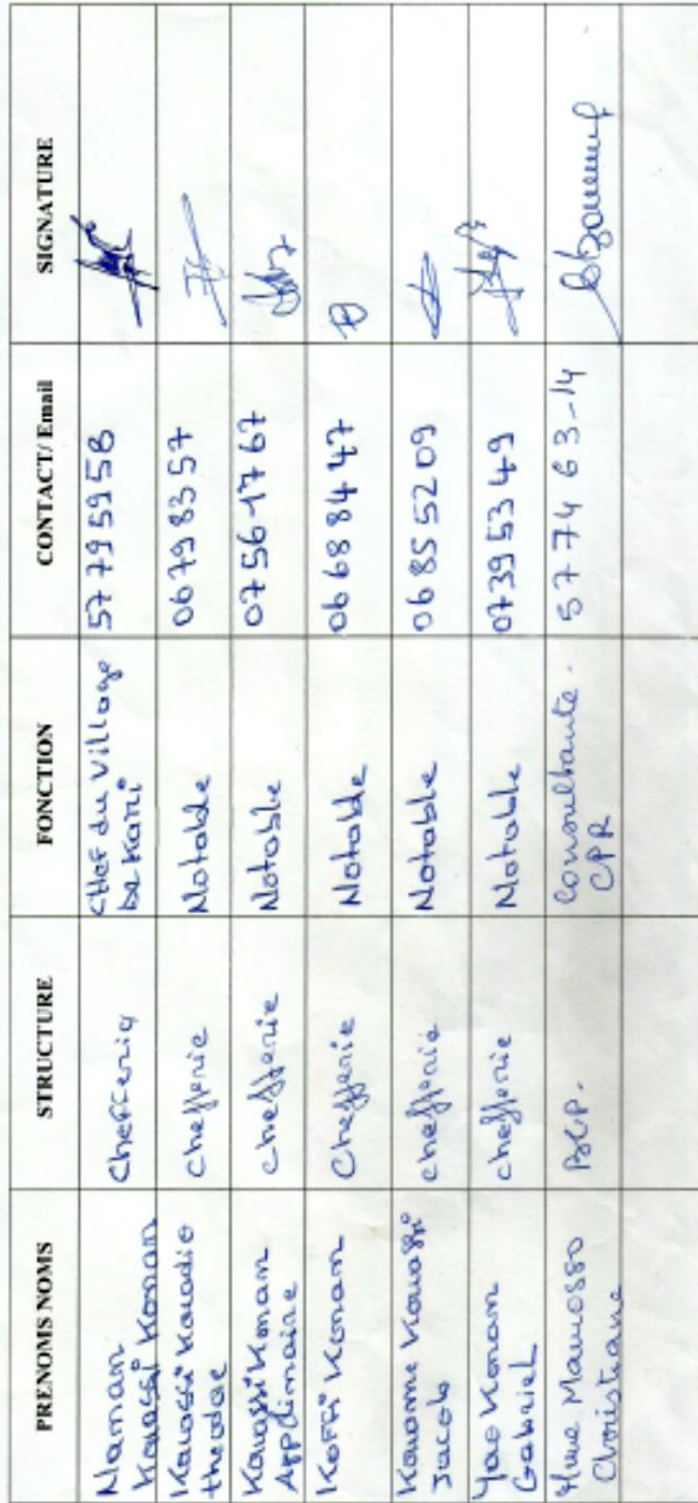 PRENOMS NOMS STRUCTURE FONCTION CONTACT/ Email SIGNATURE
Naman Kouassi Konan Chefferie Chef du village de Kani 57 79 59 58
Kouassi Kouadio theodore chefferie Notable 06 79 83 57
Kouassi Konan Chefferie Notable 07 56 17 67
Koffi Konan Chefferie Notable 06 68 84 47
Kouame Kouassi Jacob chefferie Notable 06 85 52 09
Yao Konan Gabriel chefferie Notable 07 39 53 49
Mme Christiane Consultante CPR 57 74 63-14